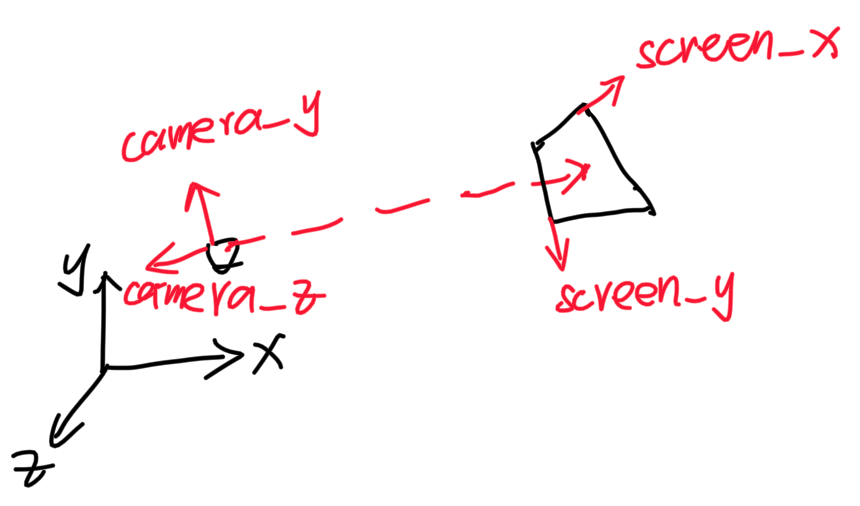 screen_x
camera_y
y
camera_z
screen_y
x
z